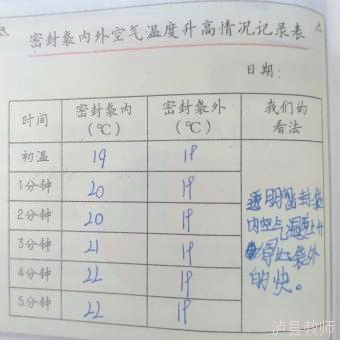 密封袋内外空气温度升高情况记录表
日期:
时间 密封袋内(℃) 密封袋外(℃) 我们的看法
初温 19 19
1分钟 20 19
2分钟 20 19
3分钟 21 19
4分钟 22 19
5分钟 22 19
透明密封袋
内空气温度上升
得比袋外
的快。
泸县教师